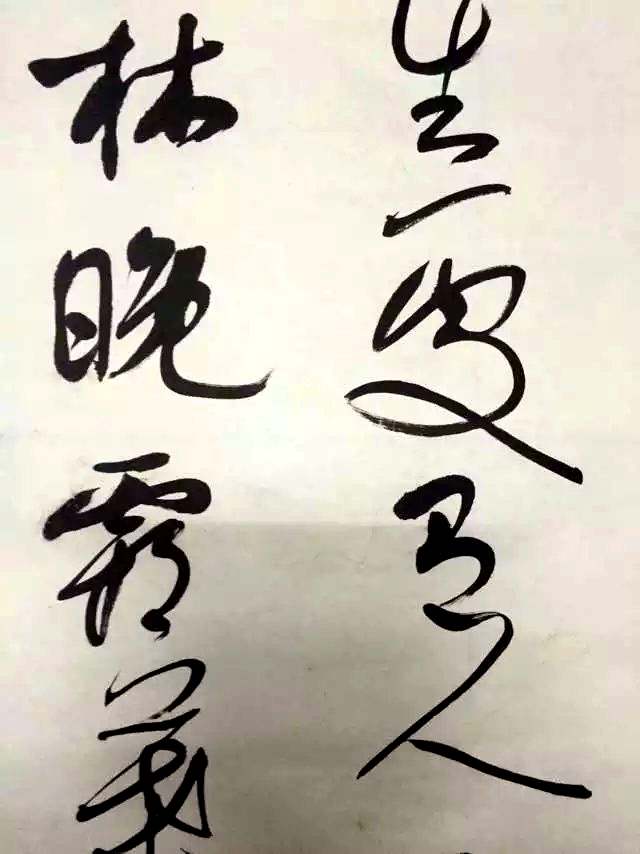 生處有人
林晚霜葉